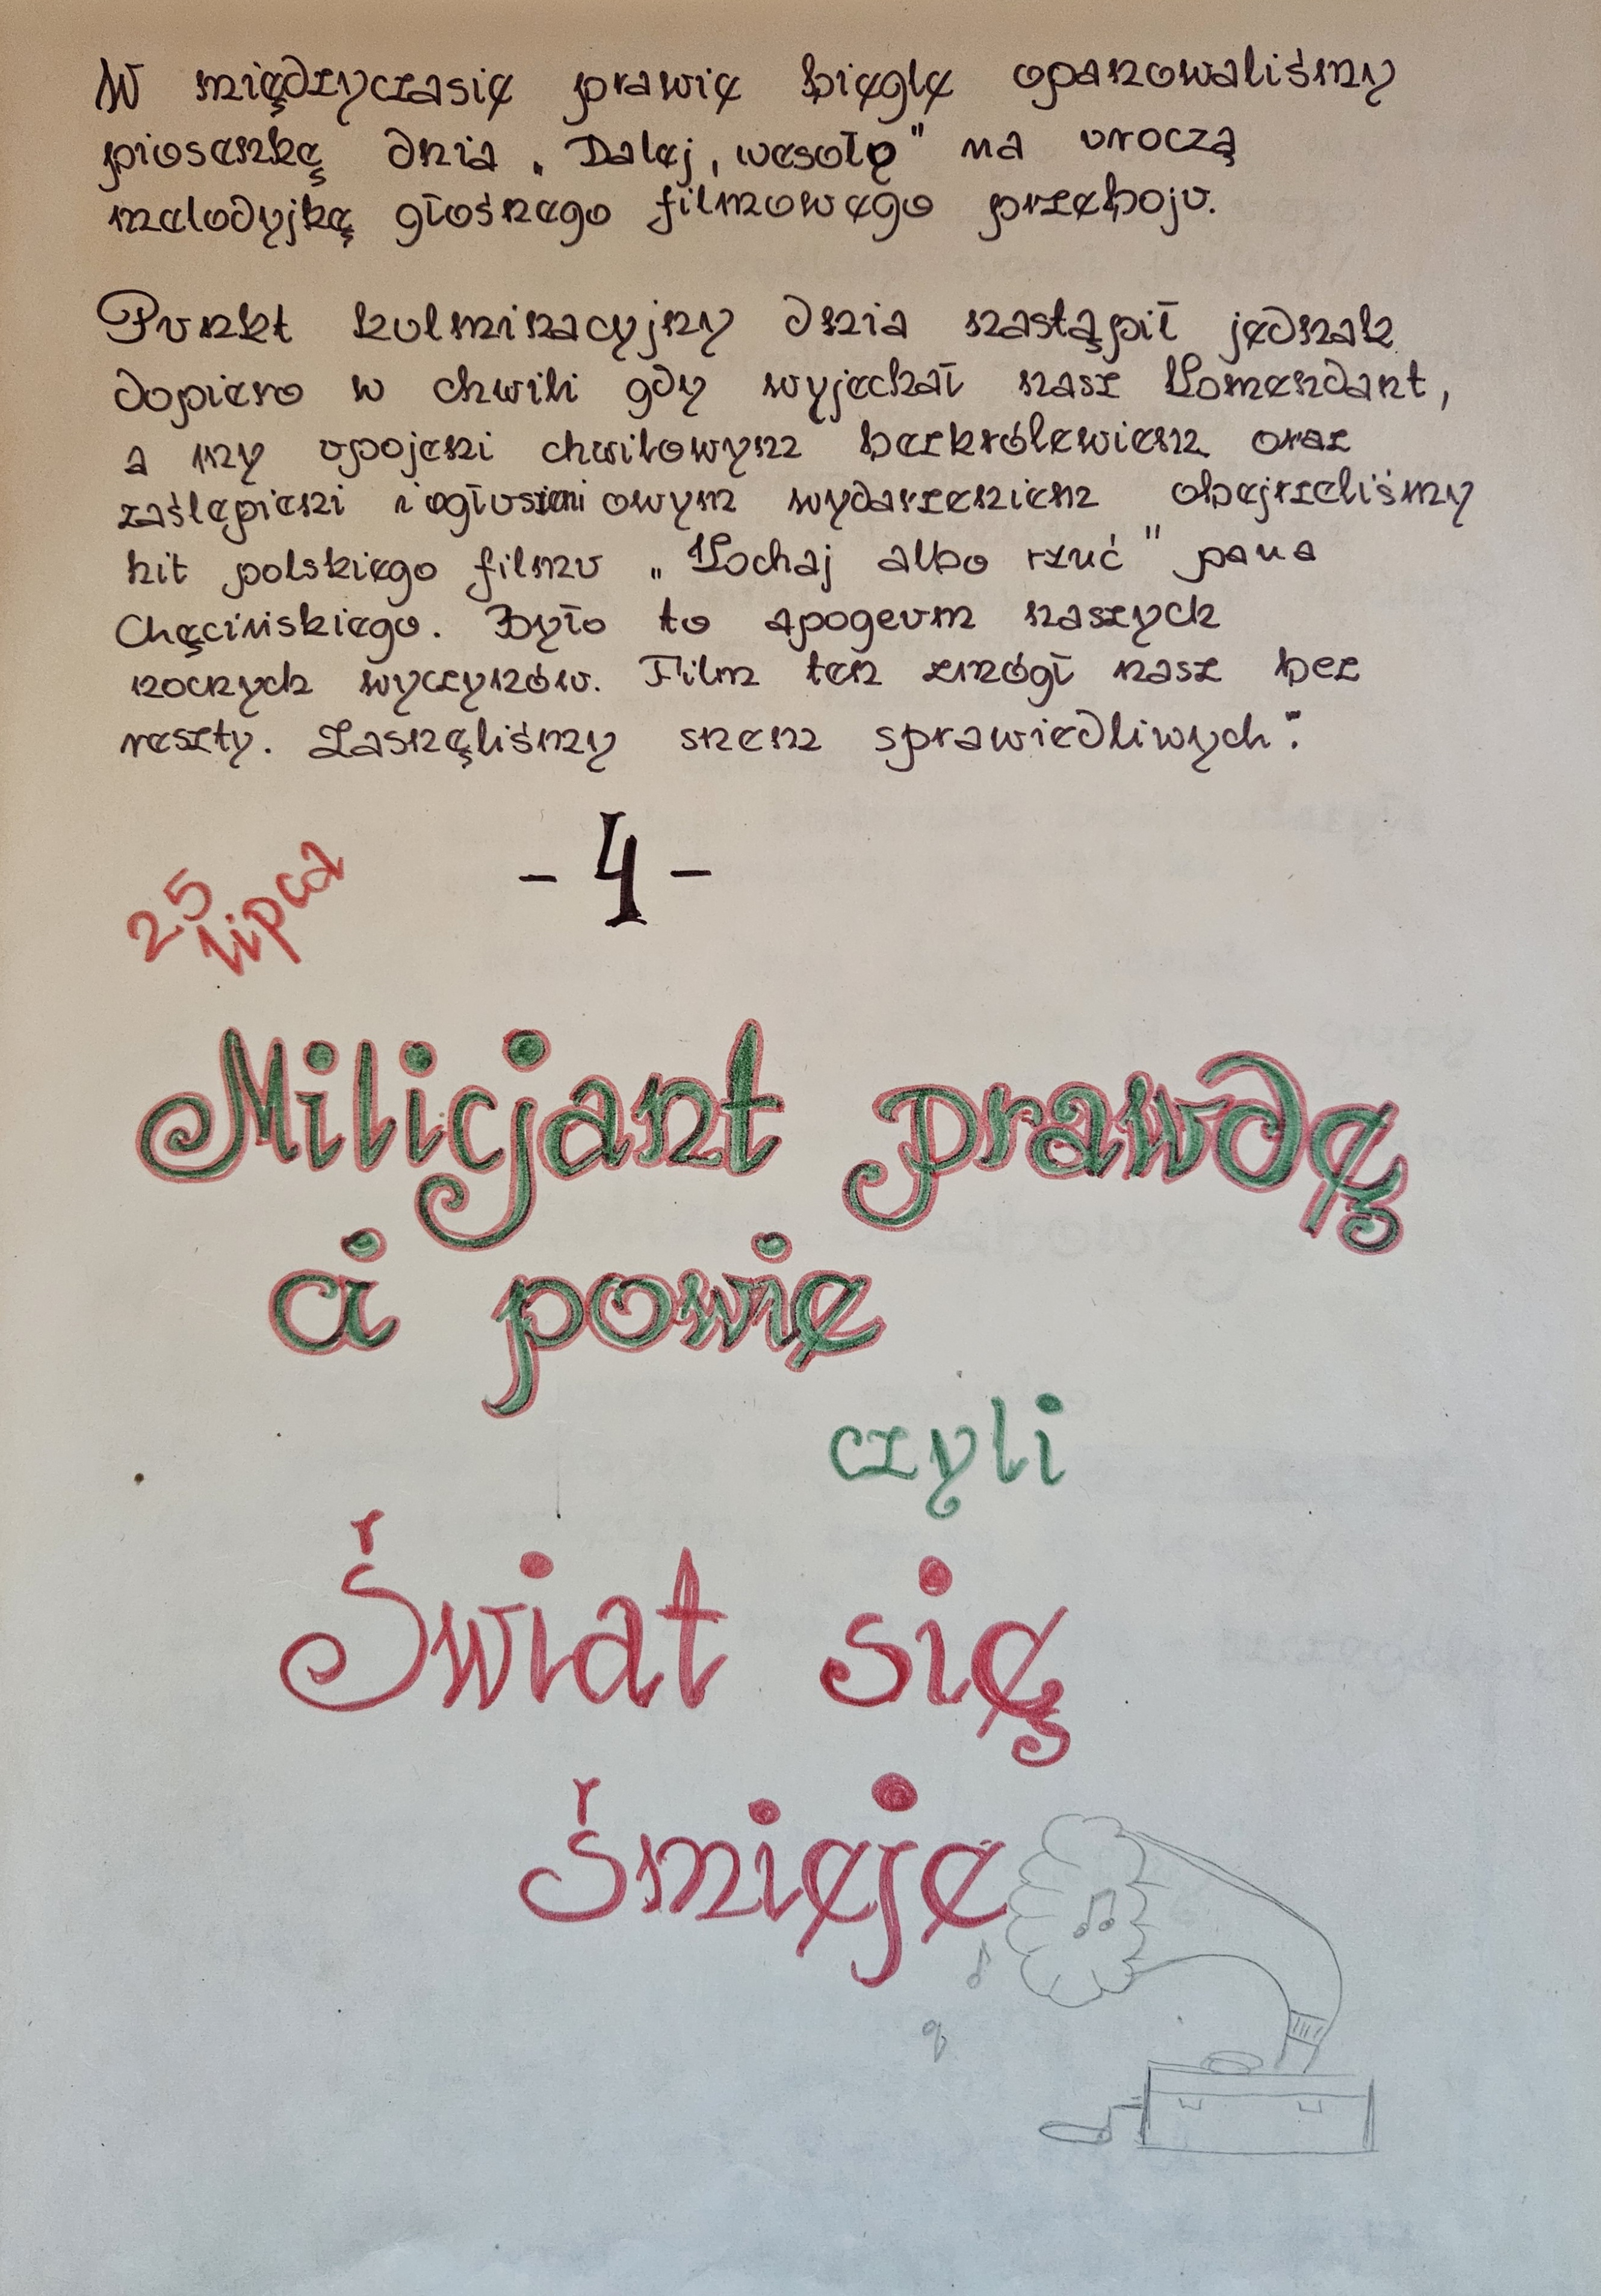 W międzyczasie prawie biegle opanowaliśmy
piosenkę dnia „Dalej, wesoło" na uroczą
melodyjkę głośnego filmowego przeboju.
Punkt kulminacyjny dnia nastąpił jednak
dopiero w chwili gdy wyjechał nasz Komendant,
a my upojeni chwilowym bezkrólewiem oraz
zaślepieni i ogłuszeni owym wydarzeniem obejrzeliśmy
hit polskiego filmu „Kochaj albo rzuć" pana
Chęcińskiego. Było to apogeum naszych
nocnych wyczynów. Film ten zmógł nasz bez
reszty. Zasnęliśmy snem sprawiedliwych".
- 4 -
25
lipca
Milicjant prawdę
ci powie
czyli
Świat się
śmieje